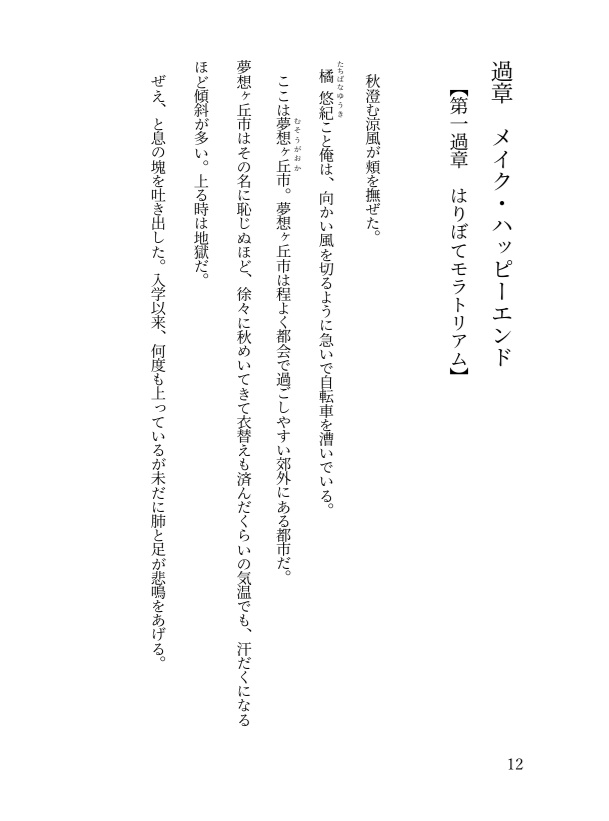 過章　メイク・ハッピーエンド
【第一過章　はりぼてモラトリアム】
秋澄む涼風が頬を撫ぜた。
たちばなゆうき
橘 悠紀こと俺は、向かい風を切るように急いで自転車を漕いでいる。
むそうがおか
ここは夢想ヶ丘市。夢想ヶ丘市は程よく都会で過ごしやすい郊外にある都市だ。
夢想ヶ丘市はその名に恥じぬほど、徐々に秋めいてきて衣替えも済んだくらいの気温でも、汗だくになる
ほど傾斜が多い。上る時は地獄だ。
ぜえ、と息の塊を吐き出した。入学以来、何度も上っているが未だに肺と足が悲鳴をあげる。
12